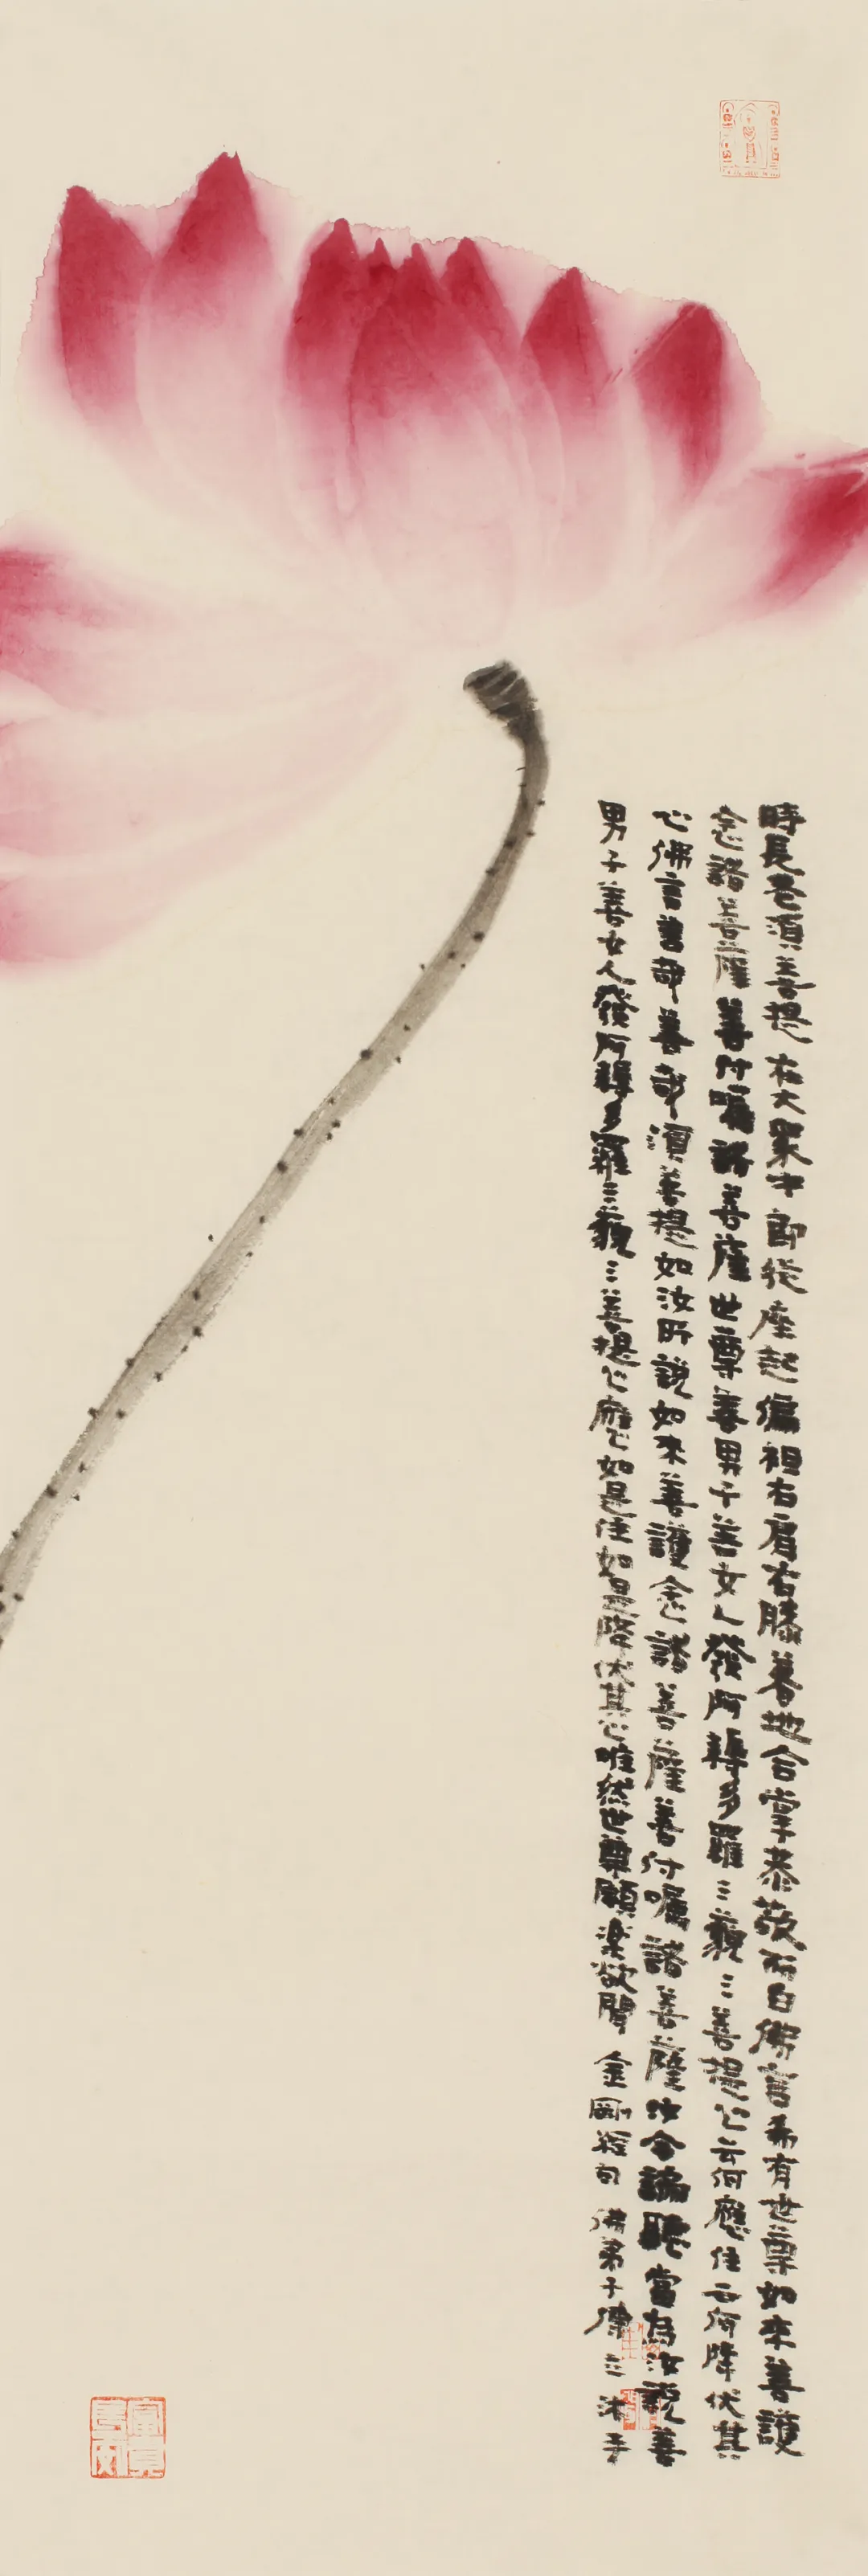 時長老須菩提在大眾中即從座起偏袒右肩右膝著地合掌恭敬而白佛言希有世尊如來善護
念諸菩薩善付囑諸菩薩世尊善男子善女人發阿耨多羅三藐三菩提心云何應住云何降伏其
心佛言善哉善哉須菩提如汝所說如來善護念諸菩薩善付囑諸菩薩汝今諦聽當為汝說善
男子善女人發阿耨多羅三藐三菩提心應如是住如是降伏其心唯然世尊願樂欲聞 金剛經句 佛弟子 三沐手